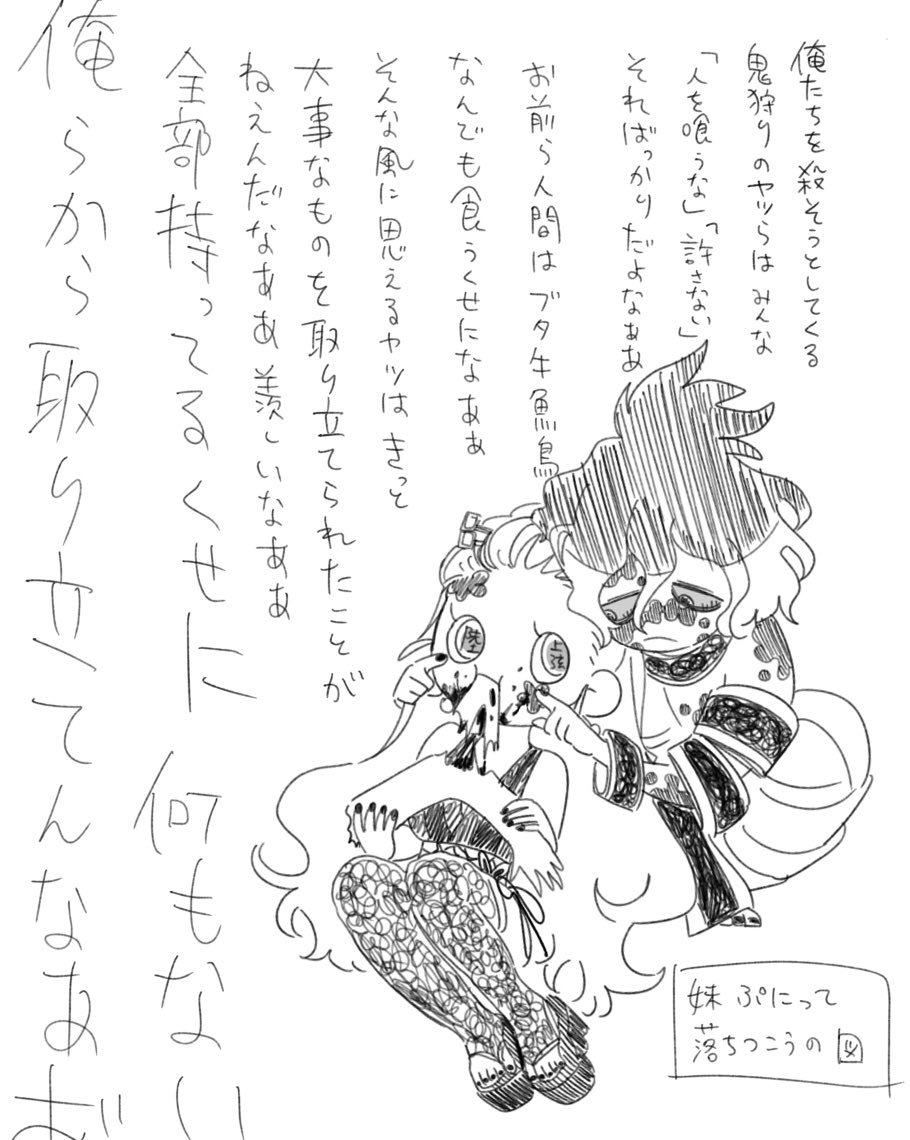 俺たちを殺そうとしてくる
鬼狩りのヤツらは みんな
「人を喰うな」「許さない」
そればっかりだよなぁぁ
お前ら人間は ブタ牛魚鳥
なんでも食うくせになぁぁ
そんな風に思えるヤツは きっと
大事なものを取り立てられたことが
ねぇんだなああ 羨しいなああ
全部持ってるくせに 何もない
俺らから取り立てんなあ
上弦
陸
妹 ぷにって
落ちつこうの 図